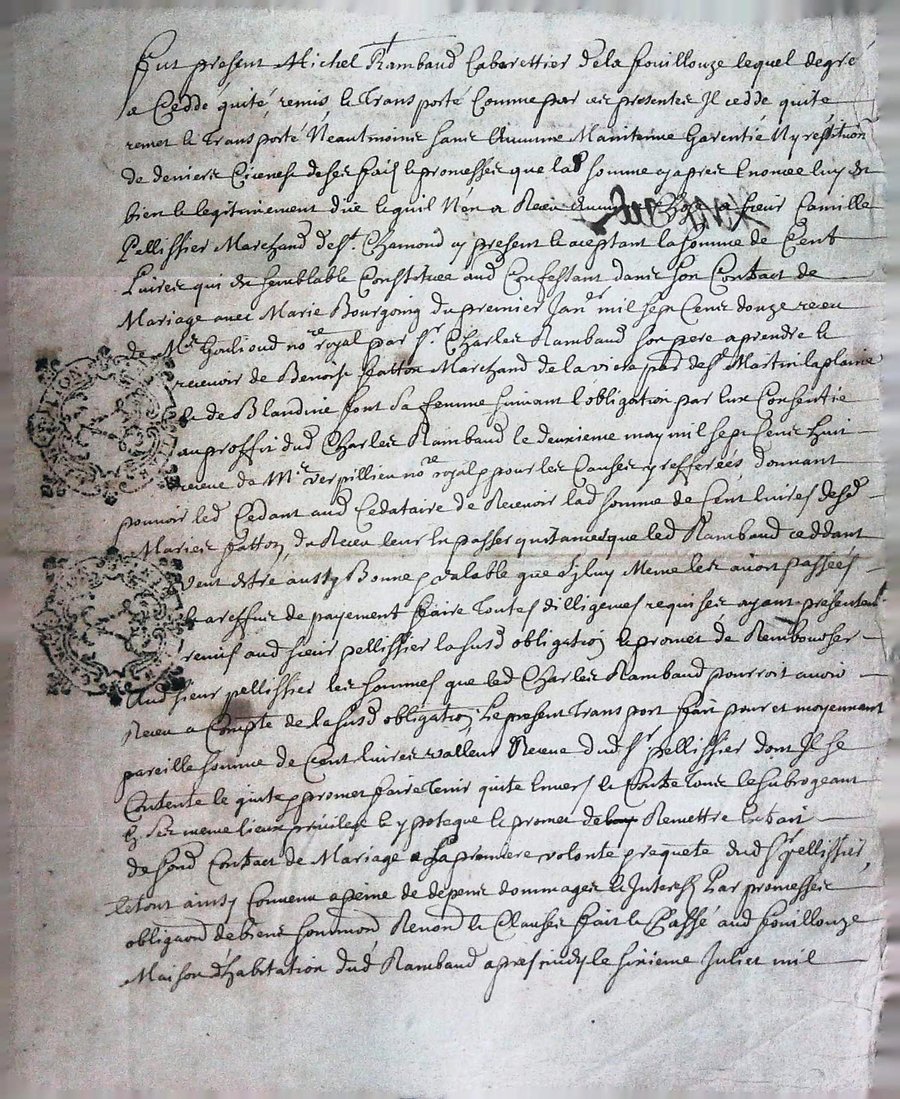 Fut present Michel Rambaud Cabarettier de la fouillouze lequel de gré
a Cedde quité, remis, & Transporté Comme par ces presentes Il cedde quite
remet & Transporté Neautmoins sans Aucunne Maintenue Garentié Ny restitution
de deniers de ses fait & promesses que lad somme cy apres Enoncee luy est
bien & legitimement due & quil Non a Receu a sieur Camille
Pellissier Marchand de St. Chamond cy present & aceptant la somme de Cent
Livres qui est semblable Constituee aud Confessant dans son Contract de
Mariage avec Marie Bourgoing du premier Janr mil sept Cens douze receu
de Me Goulioud nore royal par sr. Charles Rambaud son pere a prendre &
recevoir de Benoist fatton Marchand de la vicle par de St Martin la plaine
& de Blandine font sa femme suivant l'obligation par Eux Consentie
au proffit dud Charles Rambaud le deuxieme may mil sept Cens huit
receue de Me verpillieu nore royal & pour les Causes y refferéés donnant
pouvoir led Cedant aud Cedataire de Recevoir lad somme de Cent livres desd
Mariés fatton, du Receu leur En passer quitances que led Rambaud ceddant
veut estre aussy Bonne & valable que sy luy Meme les avoit passéés
& a reffus de payement faire Toutes dilligences requises ayant presentemt
remis aud sieur pellissier la susd obligation & promet de Rembourser
Aud sieur pellissier les sommes que led Charles Rambaud pourroit avoir
Receu a Compte de la susd obligation, Le present Transport fait pour et moyennant
pareille somme de Cent livres valleur Receue dud Sr pellissier dont Il se
Contente & quite & promet faire Tenir quite Envers & Contre Tous le subrogeant
En ses meme lieux privilege & ypoteque & promet de Remettre Extrait
de sond Contract de Mariage a La premiere volonté & requete dud Sr pellissier,
le tout ainsy Convenu a peine de depens dommages & Interest Par promesses
obligaond de biens soumond Renond & Clauses fait & Passé aud fouillouze
Maison d'habitation dud Rambaud apres midy le sixieme Juliet mil